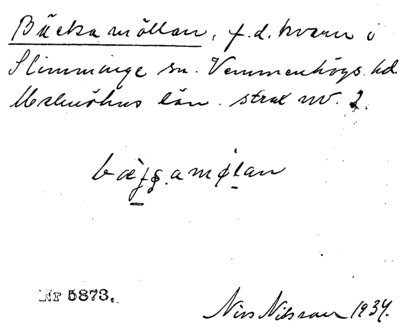 Bäckamöllan, f.d. kvarn i
Slimminge sn. Vemmenhögs hd
Malmöhus län. strax nv. 2.
Nr 5873.
Nils Nilsson 1934.